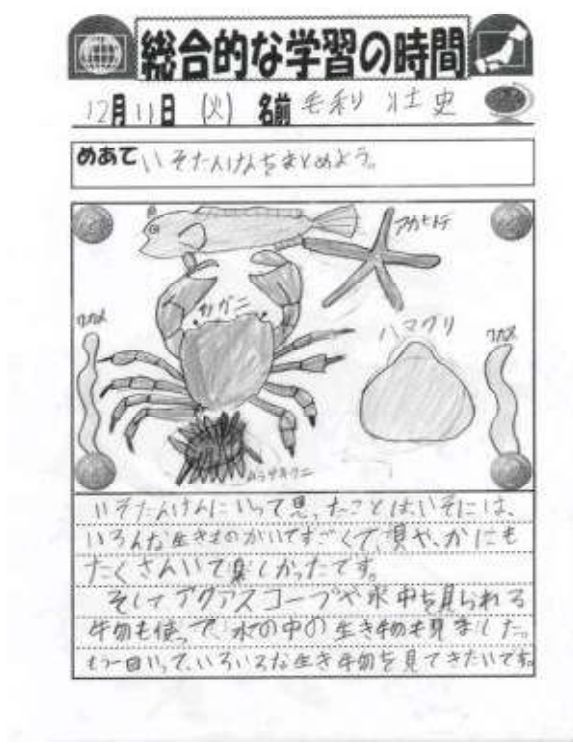 総合的な学習の時間
12月11日 (火) 名前 毛利 壮史
めあて いそたんけんをまとめよう。
アカヒトデ
カガニ
ハマグリ
ワカメ
ワカメ
ムラサキウニ
いそたんけんにいって思ったことは、いそには、
いろんな生きものがいてすごくて、貝や、かにも
たくさんいて楽しかったです。
そしてアクアスコープや水中を見られる
物も使って、水の中の生き物を見ました。
もう一回いって、いろいろな生き物を見てきたいです。